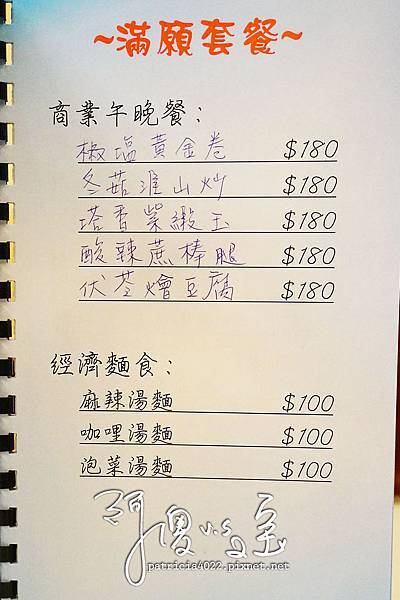 ~滿願套餐~
商業午晚餐：
椒塩黃金卷 $180
冬菇淮山炒 $180
塔香紫緞玉 $180
酸辣蔗棒腿 $180
伏苓燴豆腐 $180
經濟麵食：
麻辣湯麵 $100
咖哩湯麵 $100
泡菜湯麵 $100
patricia4022.pixnet.net